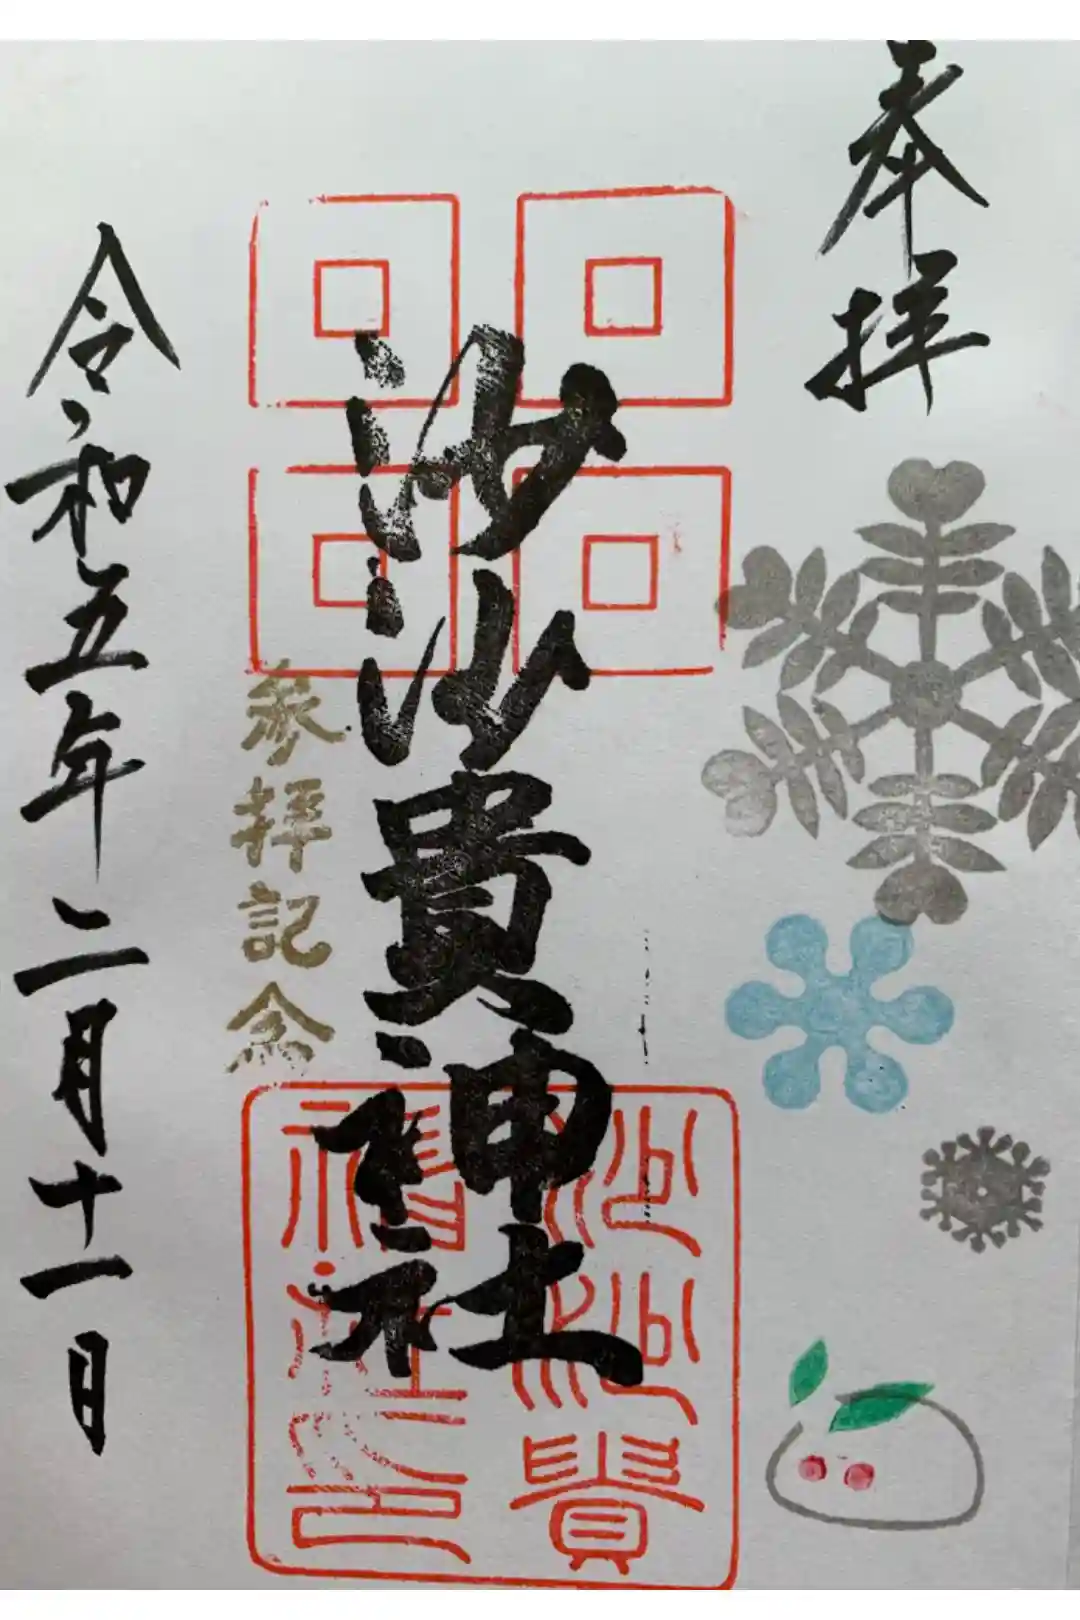 奉拝
沙沙貴神社
沙沙貴
神社之印
参拝記念
令和五年二月十一日